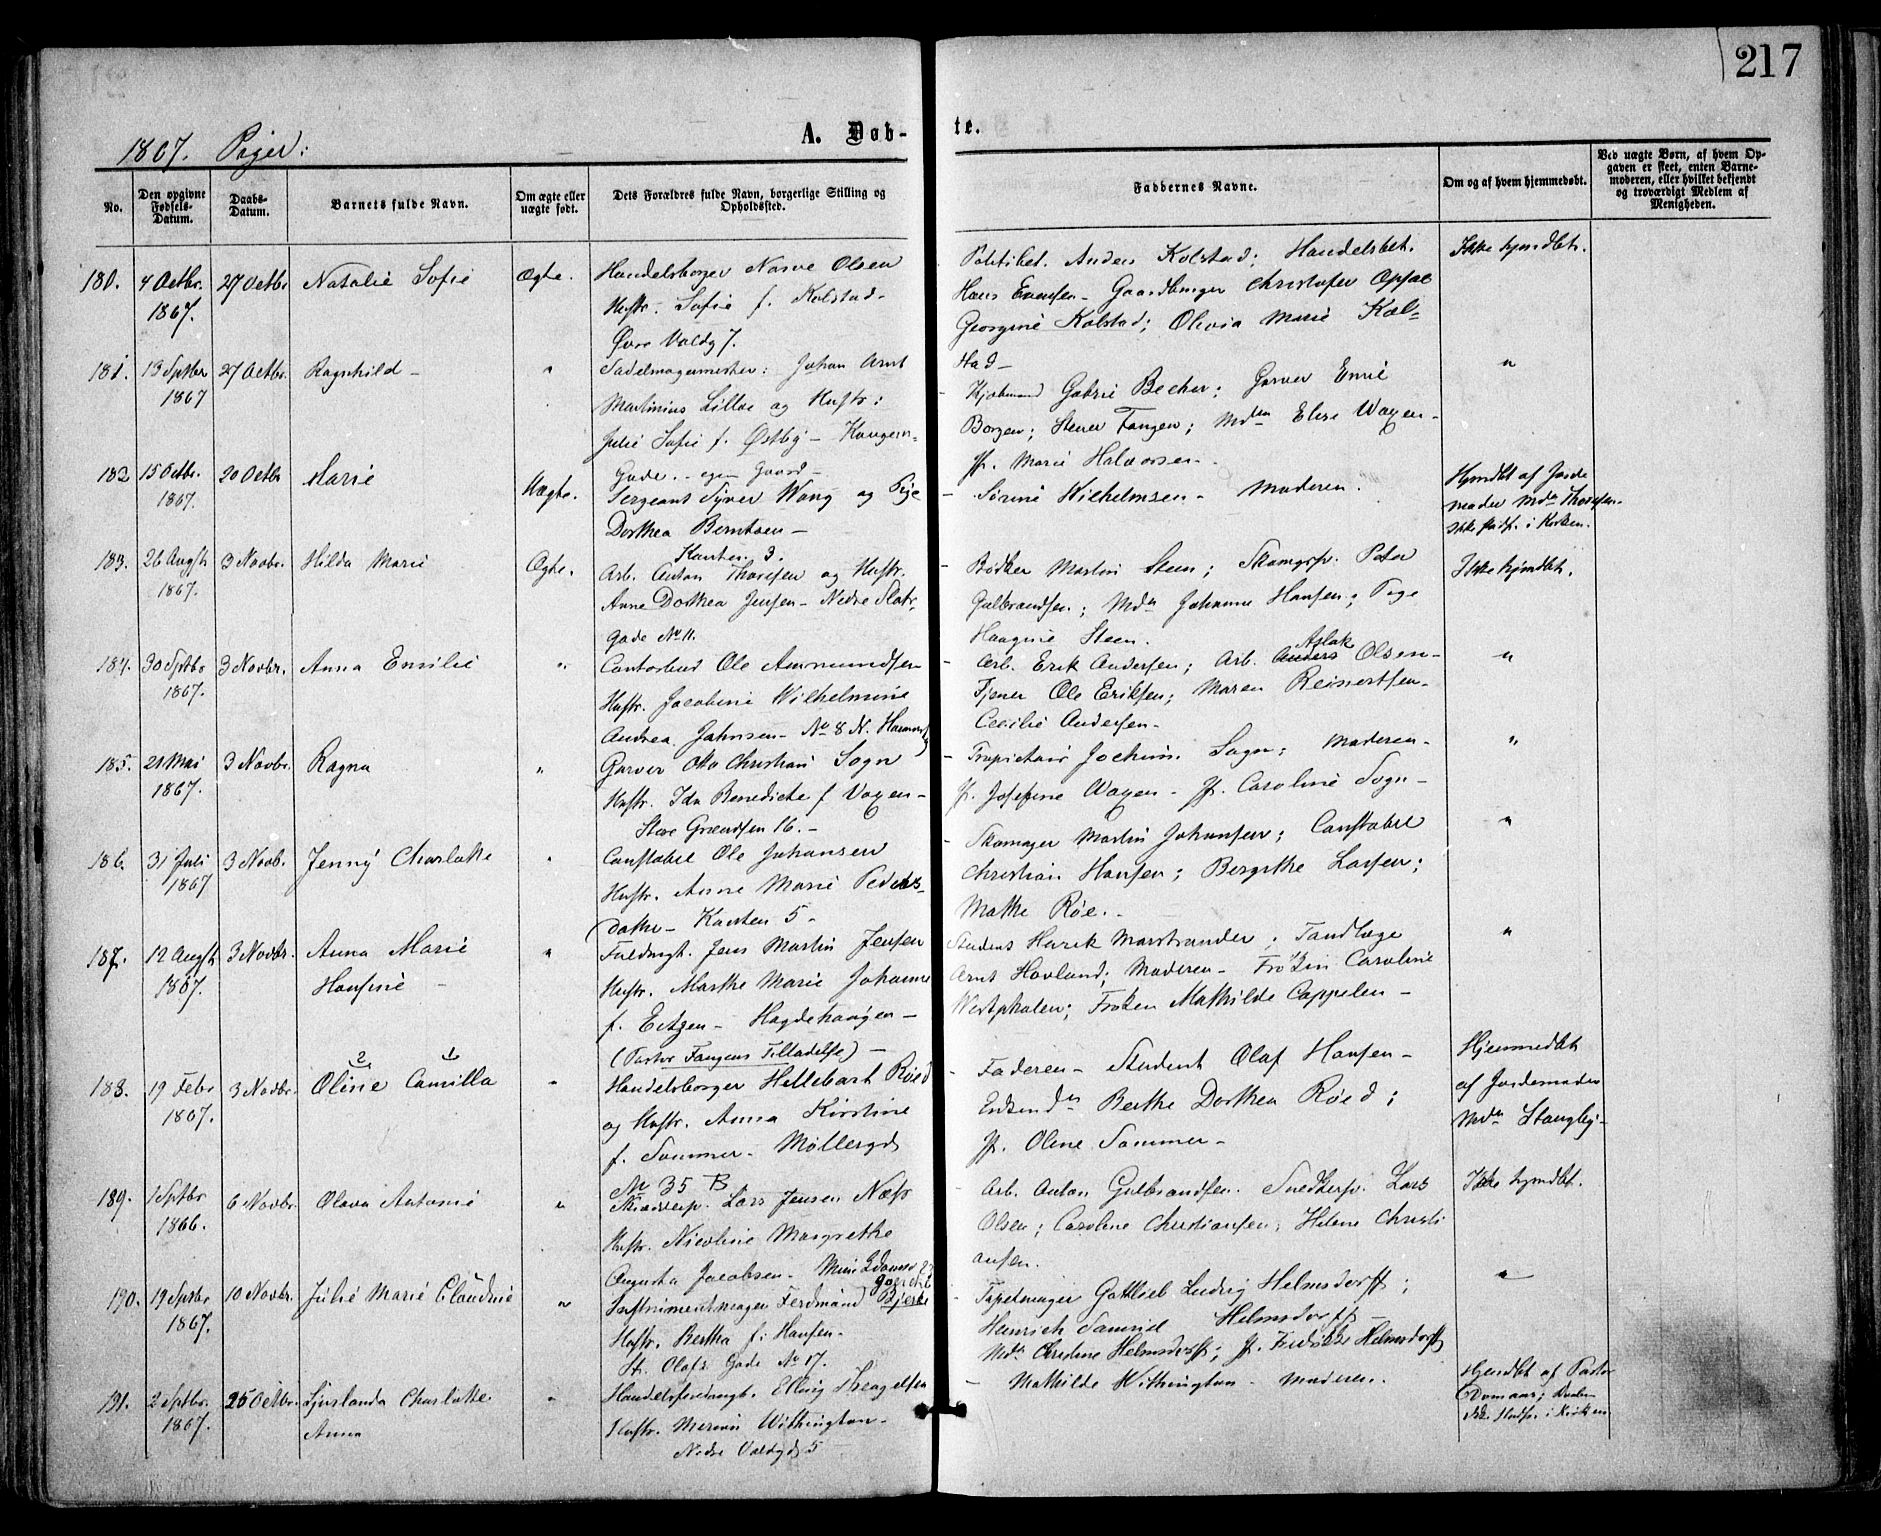 217
1867. Piger:
A. Døb-
te.
No.
Den opgivne Fødsels-Datum.
Daabs-Datum.
Barnets fulde Navn.
Om ægte eller uægte født.
Dets Forældres fulde Navn, borgerlige Stilling og Opholdssted.
Faddernes Navne.
Om og af hvem hjemmedøbt.
Ved uægte Børn, af hvem Opgaven er skeet, enten Barnemoderen, eller hvilket bekjendt og troværdigt Medlem af Menigheden.
180. 4 Octbr. 1867. 27 Octbr Natalie Sofie Ægte.
Handelsborger Narve Olsen
Hustr. Sofie f. Kolstad-
Øvre Voldg 7.
Politibet. Anders Kolstad; Handelsbet.
Hans Evensen- Gaardbruger Christofer Opsal
Georgine Kolstad; Olivia Marie Kol=
stad-
Ikke hjmdbt.
181. 13 Sptbr 1867 27 Octbr. Ragnhild - "
Sadelmagermester: Johan Arnt
Martinius Lilloe og Hustr:
Julie Sofie f. Østby- Kongens-
Gade.- egen Gaard-
- Kjøbmand Gabriel Becher; Garver Emil
Borgen; Stener Fangen; Mdm Elise Waxen-
Jf. Marie Halvorsen-
"
182 15 Octbr. 1867. 20 Octbr Marie Uægte.
Sergeant Syver Wang og Pige
Dorthea Berntsen-
Kanten 3.
- Sørine Wilhelmsen- Moderen.
Hjmdbt af Jorde
moder Mdm Thoresen.
Ikke stadf. i Kirken.
183. 26 Augst 1867. 3 Novbr. Hilda Marie Ægte.
Arb. Anton Thoresen og Hustr.
Anne Dorthea Jensen- Nedre Slots
gade No 11.
- Bødker Martin Steen; Skomgrsv. Peter
Gulbrandsen; Mdm Johanne Hansen; Pige
Haagine Steen.
Ikke hjmdbt.
184. 30 Sptbr 1867. 3 Novbr. Anna Emilie "
Contorbud Ole Aamundsen
Hustr. Jacobine Wilhelmine
Andrea Jahnsen- No 8 N. Hammersbg
- Arb. Erik Andersen; Arb. Anders Aslak Olsen-
Tjener Ole Eriksen; Maren Reinertsen-
Cecilie Andersen-
"
185. 21 Mai 1867. 3 Novbr. Ragna "
Garver Otto Christian Sogn
Hustr. Ida Benedicte f Vaxen-
Store Grændsen 16.-
- Proprietair Jochim Sogn; Moderen-
Jf. Josefine Waxen- Jf. Caroline Sogn-
"
186. 31 Juli 1867 3 Novb. Jenny Charlotte "
Constabel Ole Johansen
Hustr. Anne Marie Peders-
datter- Kanten 5-
Skomager Martin Johansen; Constabel
Christian Hansen; Bergitte Larsen;
Mathe Røe.-
"
187. 12 Augst 1867. 3 Novbr. Anna Marie Hansine - "
Fuldmgt. Jens Martin Jensen
Hustr. Marthe Marie Johanne
f. Eitzen- Hagdehaugen-
(Pastor Fangens Tilladelse)-
Student Harek Marstrander; Tandlæge
Arnt Hovland; Moderen- Frøken Caroline
Westphalen; Frøken Mathilde Cappelen-
"
188. 19 Febr 1867. 3 Novbr. Oline 2 Camilla 1 "
Handelsborger Hellebart Røed
og Hustr. Anna Kirstine
f. Sommer- Møllergd
No 35 B
- Faderen- Student Olaf Hansen-
Enkem Berthe Dorthea Røed;
Jf. Oline Sommer-
Hjemmedbt
af Jordemoder
Mdm Stangby-
189. 1 Sptbr 1866. 6 Novbr. Olava Antonie "
Skrædersv. Lars Jensen Næss
Hustr. Nicoline Margrethe
Augusta Jacobsen-
- Arb. Anton Gulbrandsen. Snedkersv. Lars
Olsen; Caroline Christiansen; Helene Christi
ansen.
Ikke hjmdbt.
190. 19 Sptbr 1867. 10 Novbr. Julie Marie Claudine "
Instrumentmager Ferdinand Bjerke
Hustr. Bertha f: Hansen-
St. Olafs Gade No 17.
- Tapetmager Gottlieb Ludvig Helmsdorff;
Heinrich Samuel Helmsdorff-
Mdm Christine Helmsdorff; Jf. Fredrikke Helmsdorff
"
191. 2 Sptbr. 1867. 25 Octbr. Charlotte Anna "
Handelsfuldmgt. Elling
Hustr. Withington-
Nedre Voldgd 5
- Mathilde Withington- Moderen.
Hjmdbt af Pastor
Domaas; Daaben
ikke stadf. i Kirken